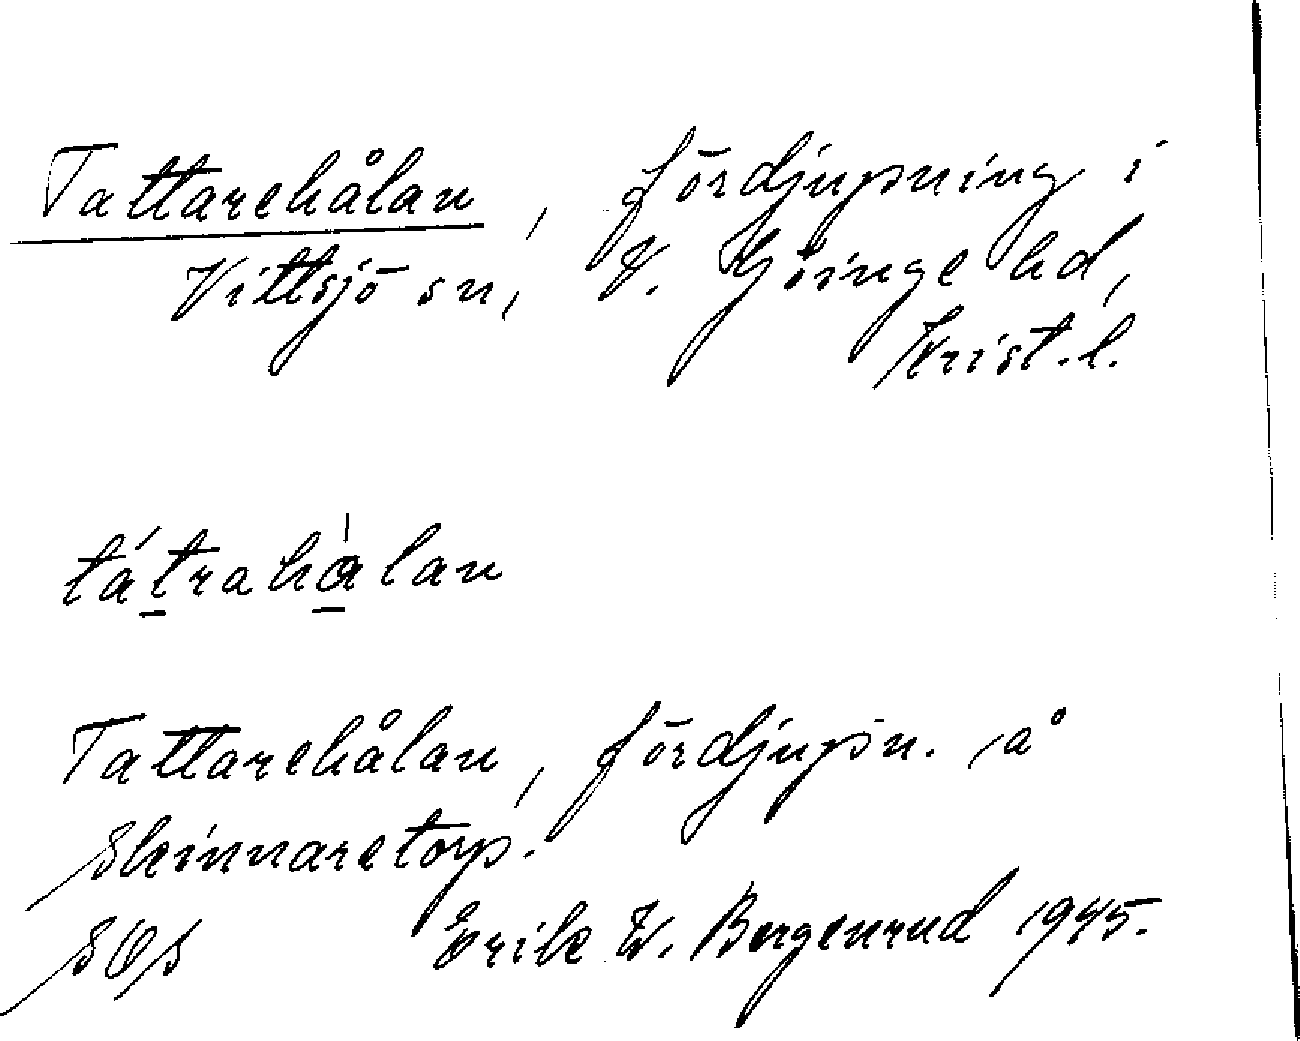 Tattarehålan, fördjupning i
Vittsjö sn, V. Göinge hd,
Krist. l.
tátrahålan
Tattarehålan, fördjupn. å
Skinnaretorp.
SOS Erik W. Bergenrud 1945.